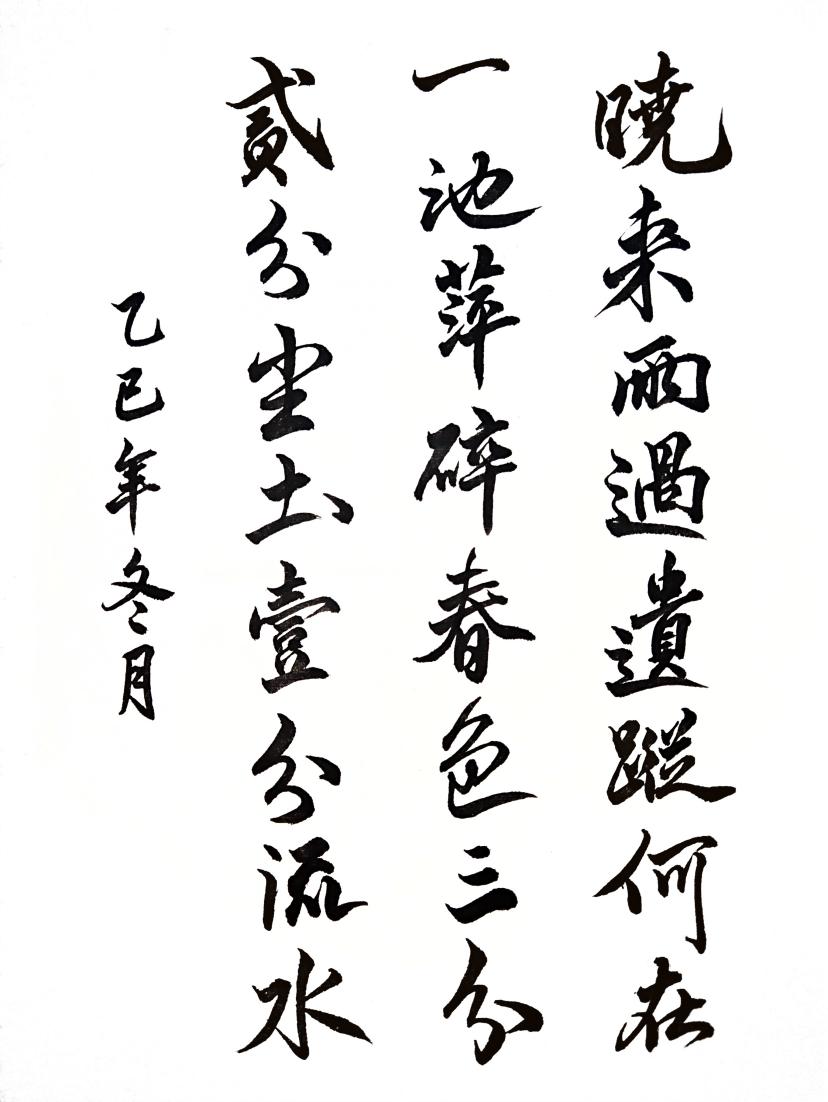 曉来雨過遺蹤何在
一池萍碎春色三分
貳分尘土壹分流水
乙巳年冬月